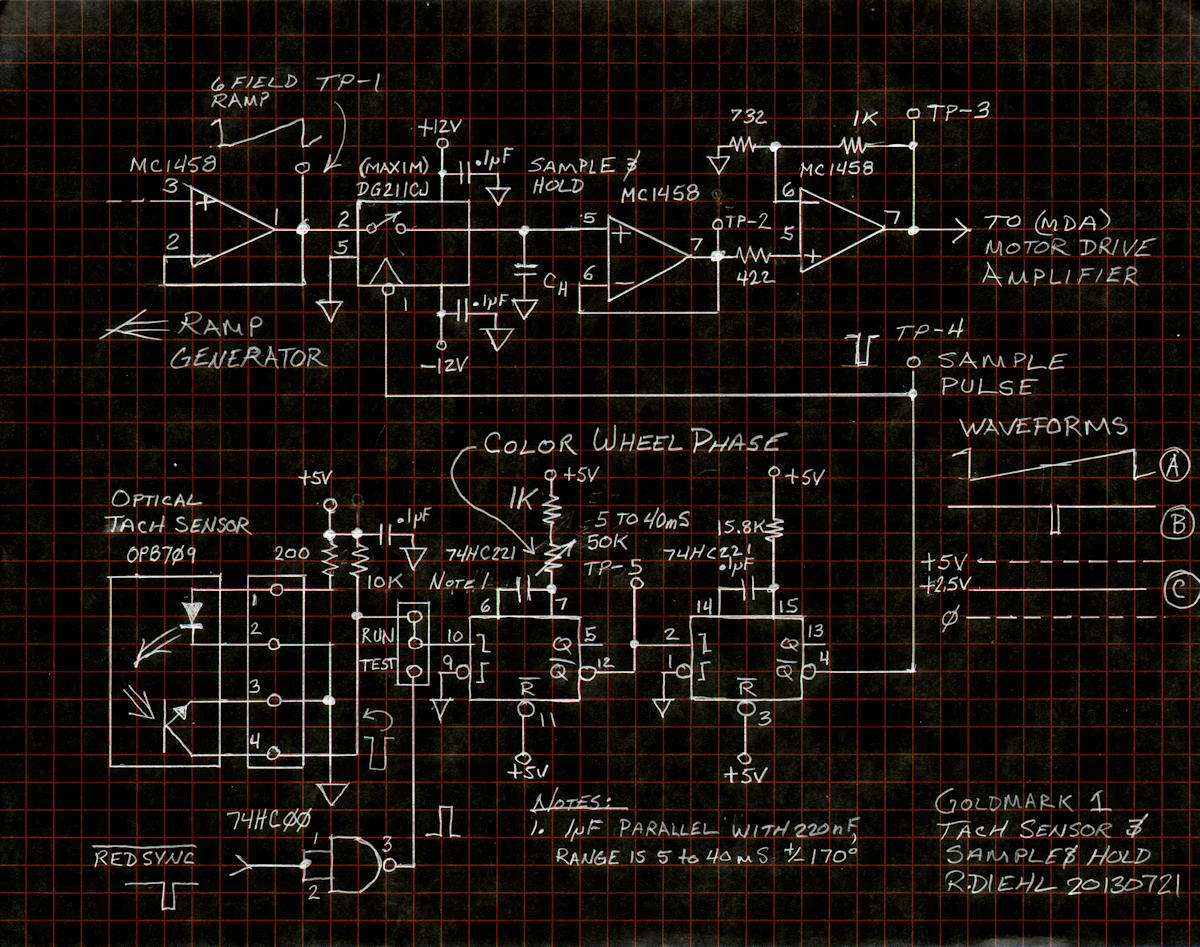 6 FIELD TP-1
RAMP
732
1K
TP-3
+12V
MC1458
(MAXIM)
DG211CJ
.1µF
SAMPLE &
HOLD
MC1458
MC1458
3
+
2
1
6
2
5
1
5
+
6
−
7
TP-2
422
6
−
5
+
7
TO (MDA)
MOTOR DRIVE
AMPLIFIER
CH
.1µF
-12V
RAMP
GENERATOR
TP-4
SAMPLE
PULSE
COLOR WHEEL PHASE
WAVEFORMS
A
B
+5V
+2.5V
C
Ø
OPTICAL
TACH SENSOR
OPB709
+5V
.1µF
200
10K
1
2
3
4
RUN
TEST
+5V
1K
5 TO 40mS
50K
74HC221
NOTE 1
TP-5
6
7
10
9
Q
5
Q
12
R
11
+5V
+5V
15.8K
74HC221
.1µF
14
15
2
1
Q
13
Q
4
R
3
+5V
74HC00
1
2
3
RED SYNC
NOTES:
1. 1µF PARALLEL WITH 220nF,
RANGE IS 5 to 40mS +/- 170°
GOLDMARK 1
TACH SENSOR &
SAMPLE & HOLD
R.DIEHL 20130721